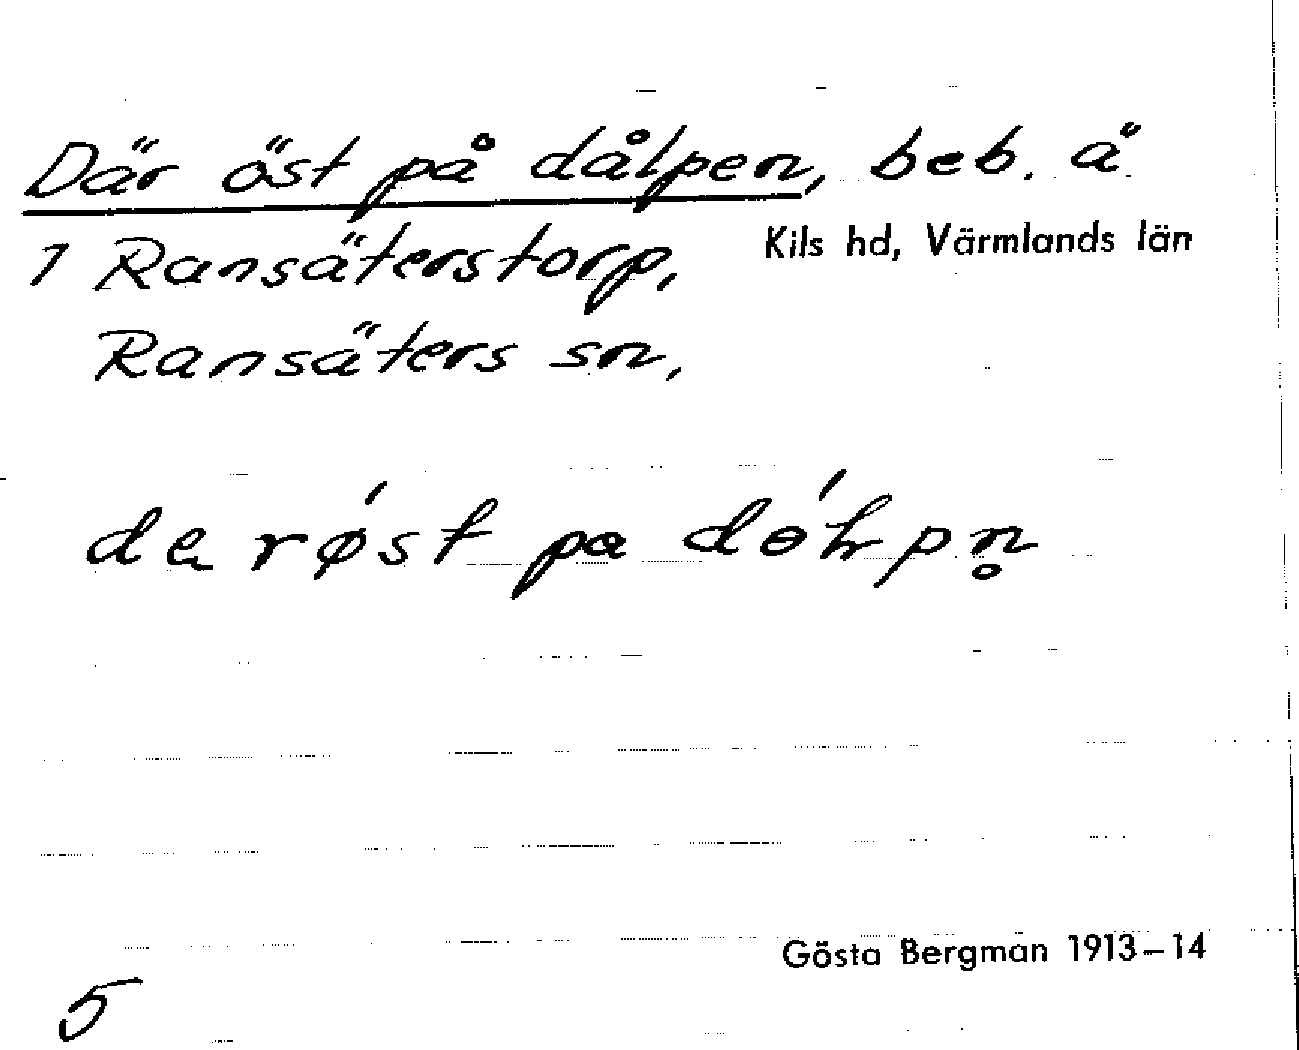 Där öst på dålpen, beb. å
1 Ransäterstorp, Kils hd, Värmlands län
Ransäters sn,
røst pa
Gösta Bergman 1913–14
5